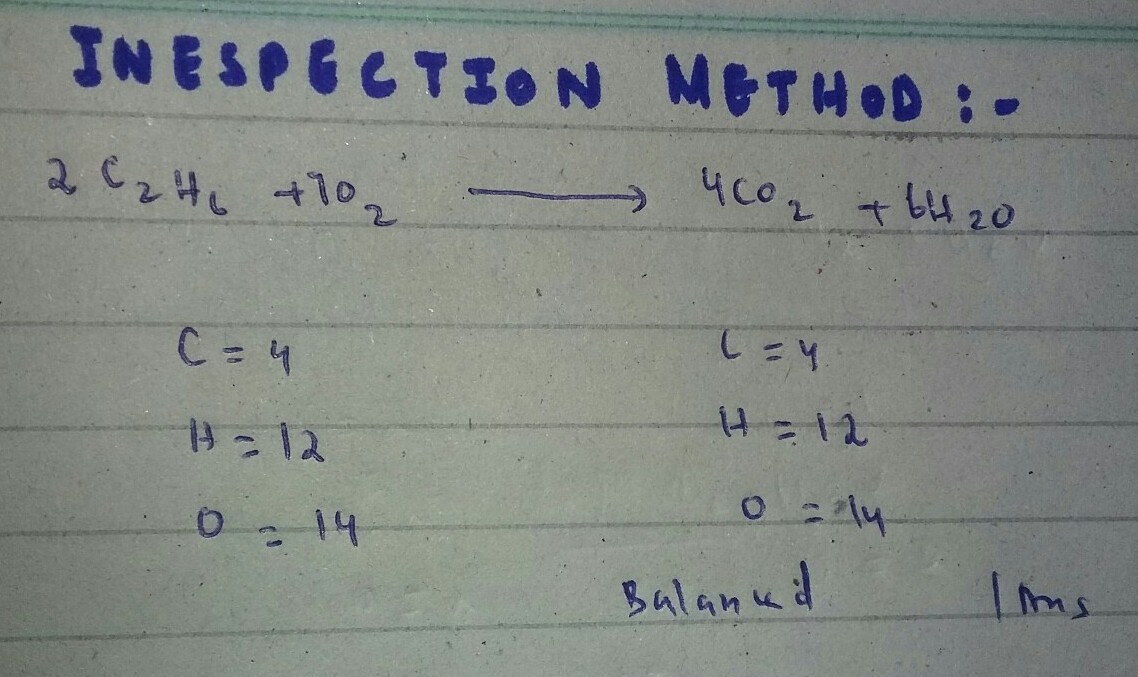 INESPECTION METHOD :-
2 C2H6 + 7O2 → 4CO2 + 6H2O
C = 4 C = 4
H = 12 H = 12
O = 14 O = 14
Balancd / Ans